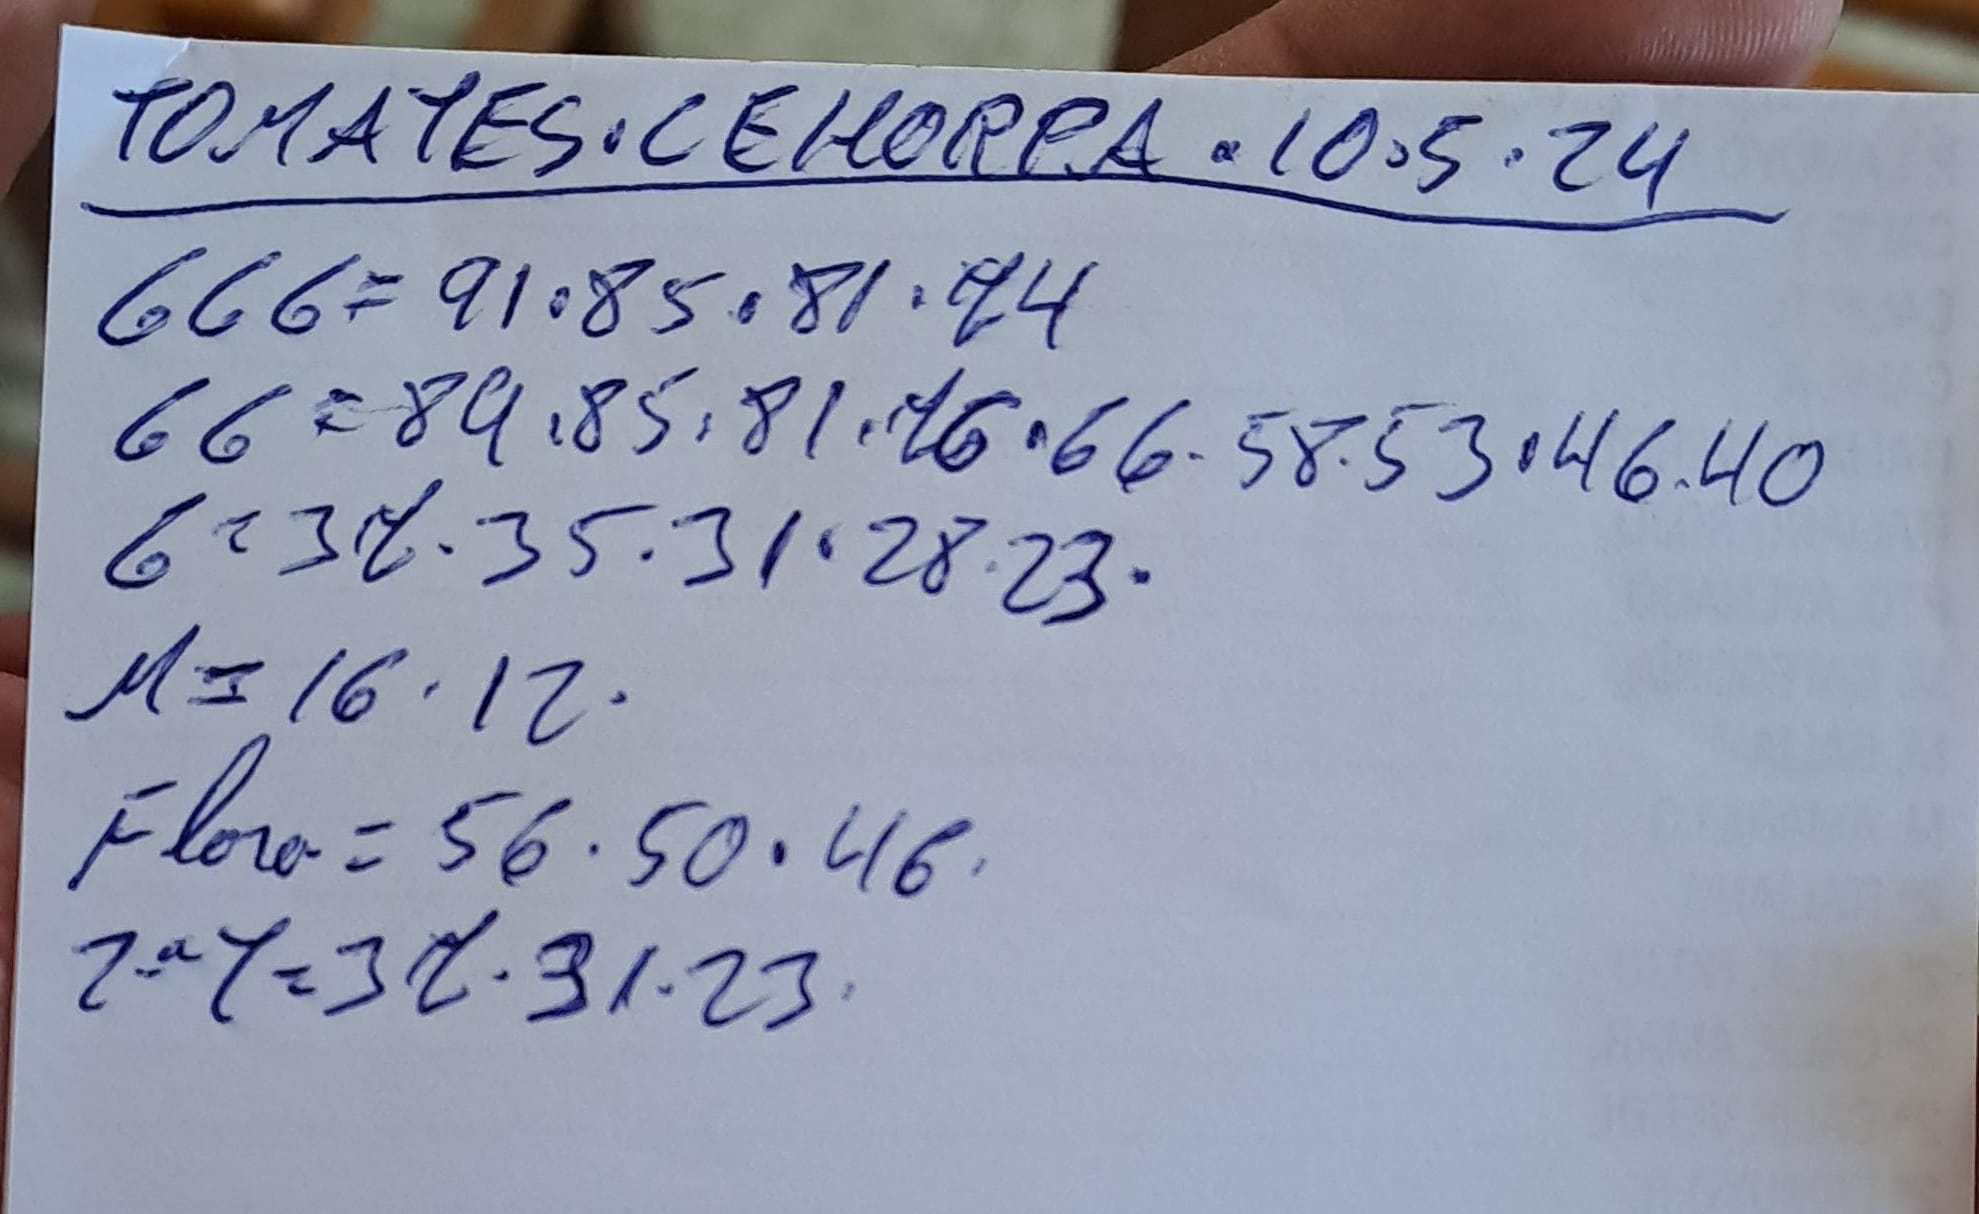 TOMATES.CEHORPA.10.5.24
666=91.85.81.74
66=89.85.81.76.66.58.53.46.40
6=37.35.31.28.23.
M=16.12.
Floro=56.50.46.
2ª7=37.31.23.